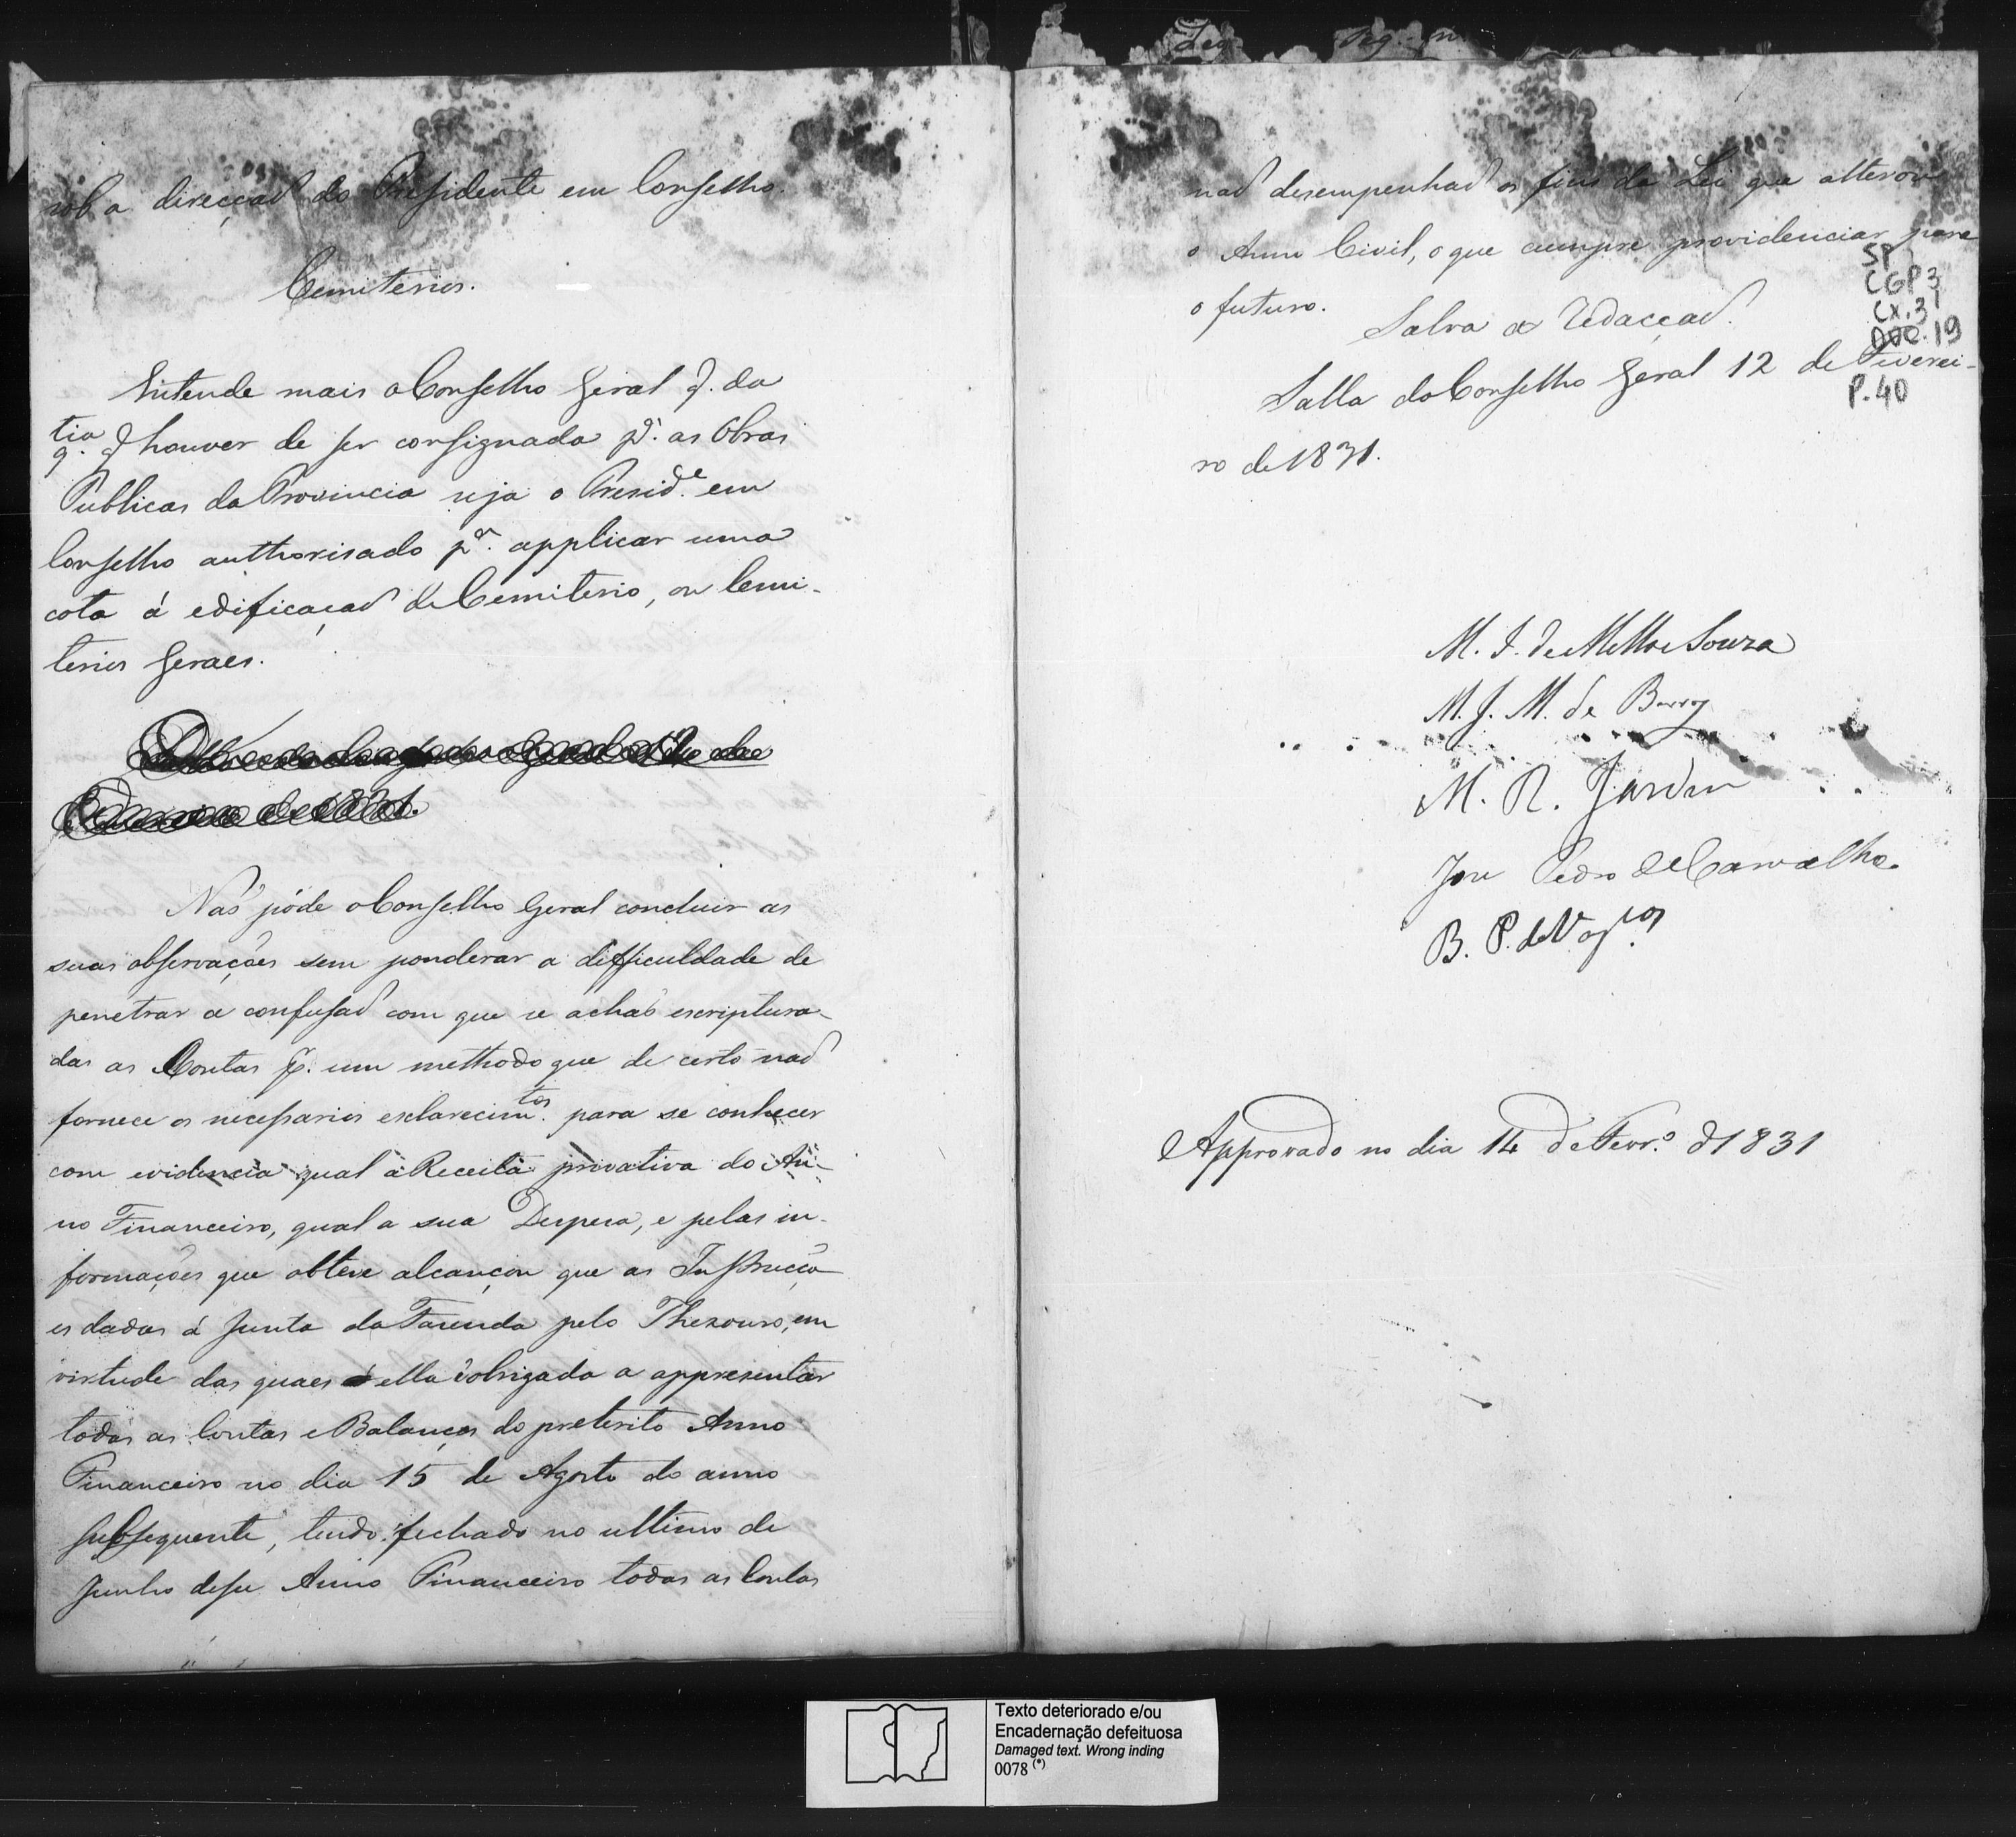 sob a direcçaõ do Presidente em Conselho.
Cemiterios.
Entende mais o Conselho Geral q. da
q.tia q houver de ser consignada p.ª as Obras
Publicas da Provincia seja o Presid.e em
Conselho authorisado p.ª applicar uma
cota á edificaçaõ de Cemiterio, ou Cemi-
terios Geraes.
Naõ póde o Conselho Geral concluir as
suas observações sem ponderar a difficuldade de
penetrar a confusaõ com que se achaõ escriptura-
das as Contas p. um methodo que de certo naõ
fornece os necessarios esclarecim.tos para se conhecer
com evidencia qual a Receita privativa do An-
no Financeiro, qual a sua Despeza, e pelas in-
formações que obteve alcançou que as Instrucçõ-
es dadas á Junta da Fazenda pelo Thezouro, em
virtude das quaes ella é obrigada a appresentar
todas as Contas e Balanços do preterito Anno
Financeiro no dia 15 de Agosto do anno
subsequente, tendo fechado no ultimo de
Junho desse Anno Financeiro todas as Contas
naõ desempenhaõ os fins da Lei que alterou
o Anno Civil, o que cumpre providenciar para
o futuro.
Salva a Redacçaõ.
Salla do Conselho Geral 12 de Feverei-
ro de 1831.
SP
CGP3
CX.31
DOC.19
P.40
M. I. de Mello e Souza
M. J. M. de Barros
M. R. Jardim
Jose Pedro de Carvalho
B. P. de Vas.cos
Approvado no dia 14 de Fevr.º d 1831
Texto deteriorado e/ou
Encadernação defeituosa
Damaged text. Wrong inding
0078 (*)